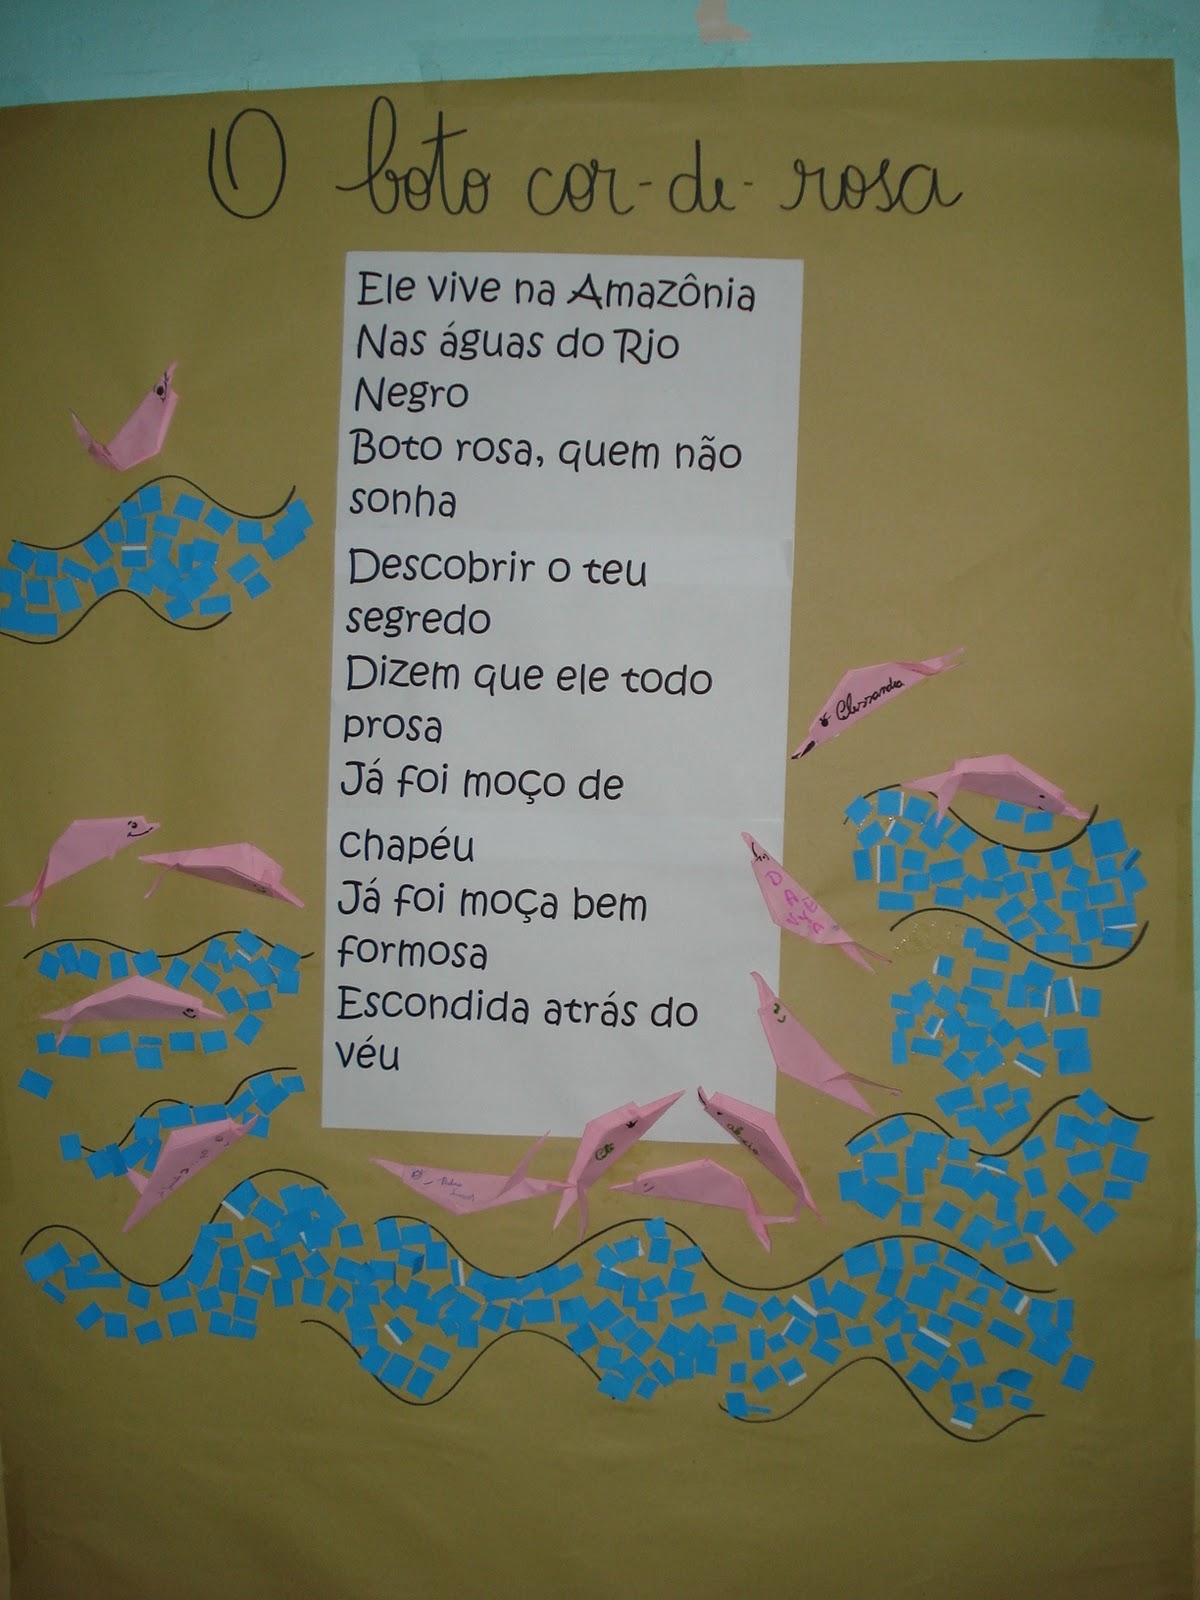 O boto cor-de-rosa
Ele vive na Amazônia
Nas águas do Rio
Negro
Boto rosa, quem não
sonha
Descobrir o teu
segredo
Dizem que ele todo
prosa
Já foi moço de
chapéu
Já foi moça bem
formosa
Escondida atrás do
véu